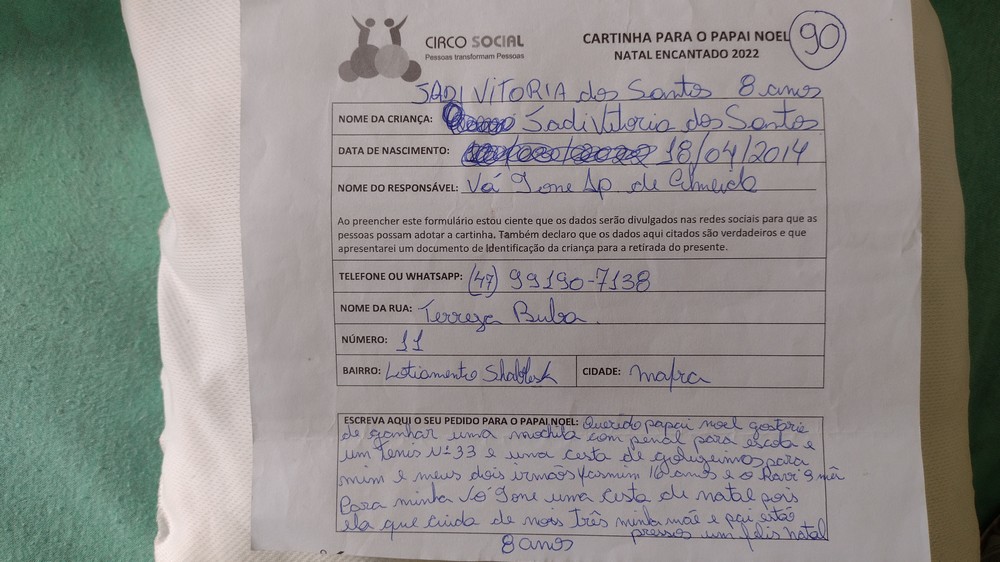 CIRCO SOCIAL
Pessoas transformam Pessoas
CARTINHA PARA O PAPAI NOEL
NATAL ENCANTADO 2022
90
JADI VITORIA dos Santos 8 anos
NOME DA CRIANÇA: Jadi Vitoria dos Santos
DATA DE NASCIMENTO: 18/04/2014
NOME DO RESPONSÁVEL: Vó Ione Ap. de Almeida
Ao preencher este formulário estou ciente que os dados serão divulgados nas redes sociais para que as
pessoas possam adotar a cartinha. Também declaro que os dados aqui citados são verdadeiros e que
apresentarei um documento de identificação da criança para a retirada do presente.
TELEFONE OU WHATSAPP: (47) 99190-7138
NOME DA RUA: Terreza Buba
NÚMERO: 11
BAIRRO: Lotiamento
CIDADE: mafra
ESCREVA AQUI O SEU PEDIDO PARA O PAPAI NOEL: Querido papai noel gostarie
de ganhar uma mochila com penal para escola e
um tenis Nº 33 e uma cesta de
para
mim e meus dois irmãos Yasmim 16 anos e o Ravi 9 mês
Para minha Vó Ione uma cesta de natal pois
ela que cuida de nois três minha mãe e pai estão
pressos um felis natal
8 anos